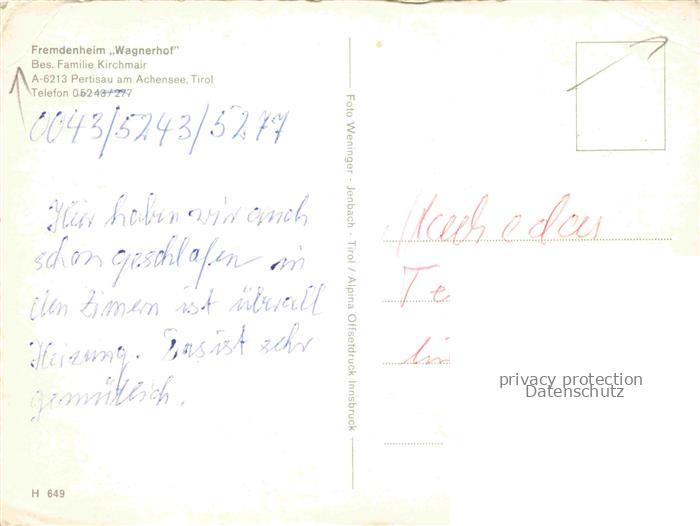 Fremdenheim „Wagnerhof"
Bes. Familie Kirchmair
A-6213 Pertisau am Achensee, Tirol
Telefon 05243/277
0043/5243/5277
Hier haben wir auch
schon geschlafen in
den Zimern ist überall
Heizung. Das ist sehr
gemütlich.
H 649
Foto Weninger - Jenbach - Tirol / Alpina Offsetdruck Innsbruck
Te
privacy protection
Datenschutz